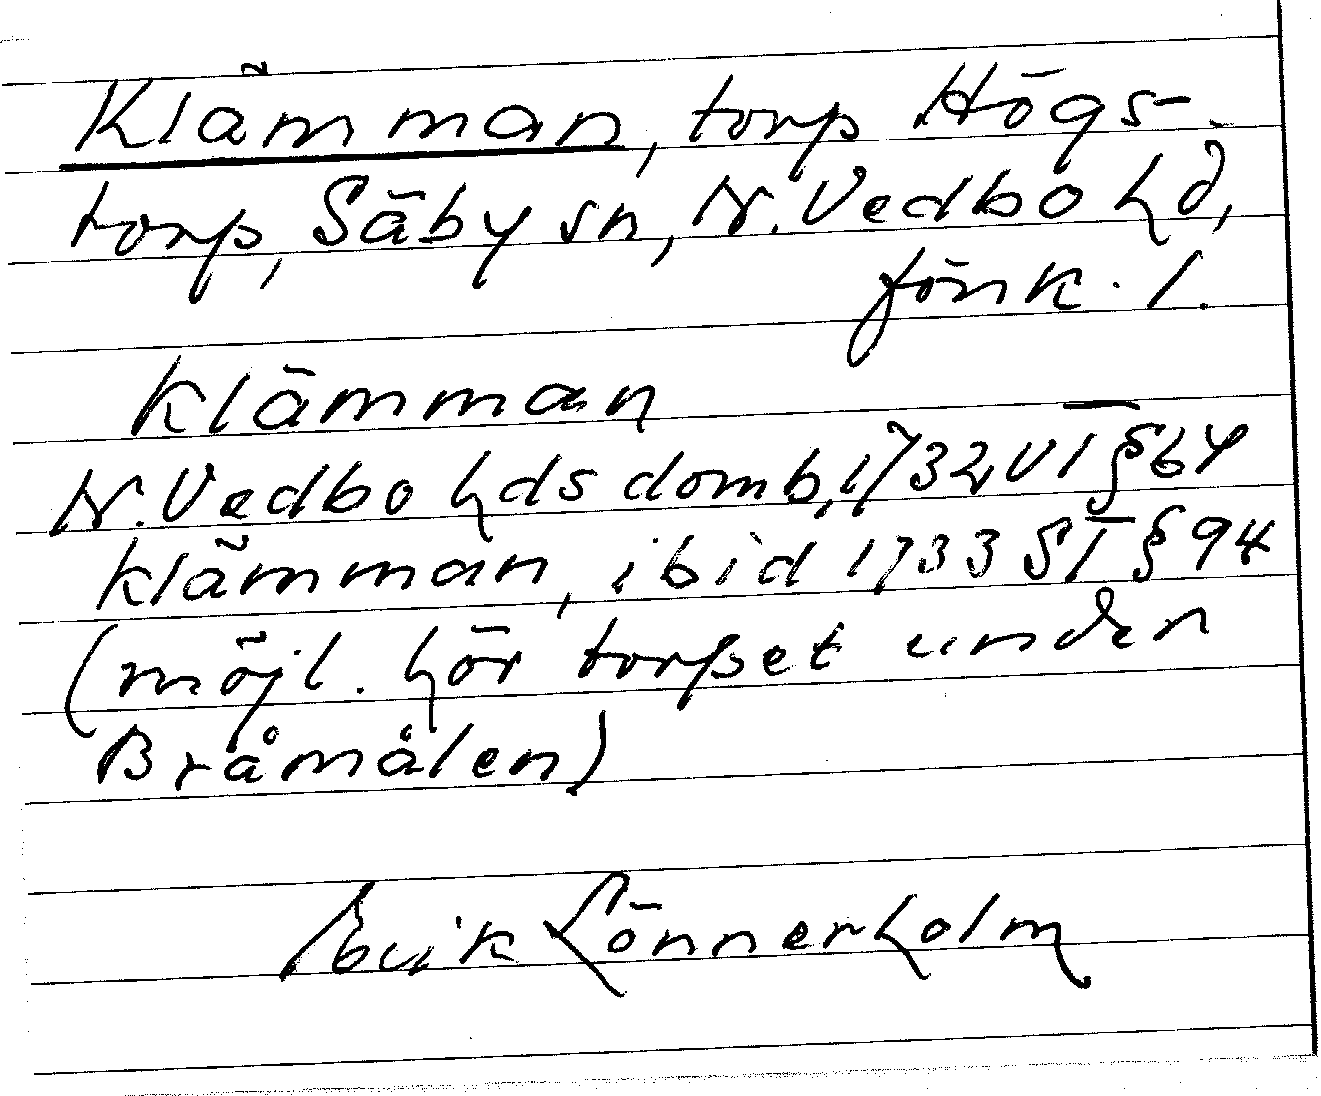 Klämman, torp Högs-
torp, Säby sn, N. Vedbo hd,
Jönk. l.
Klämman
N. Vedbo hds domb, 1732 VI § 64
Klämman, ibid 1733 SI § 94
(möjl. hör torpet under
Bråmålen)
Erik Lönnerholm